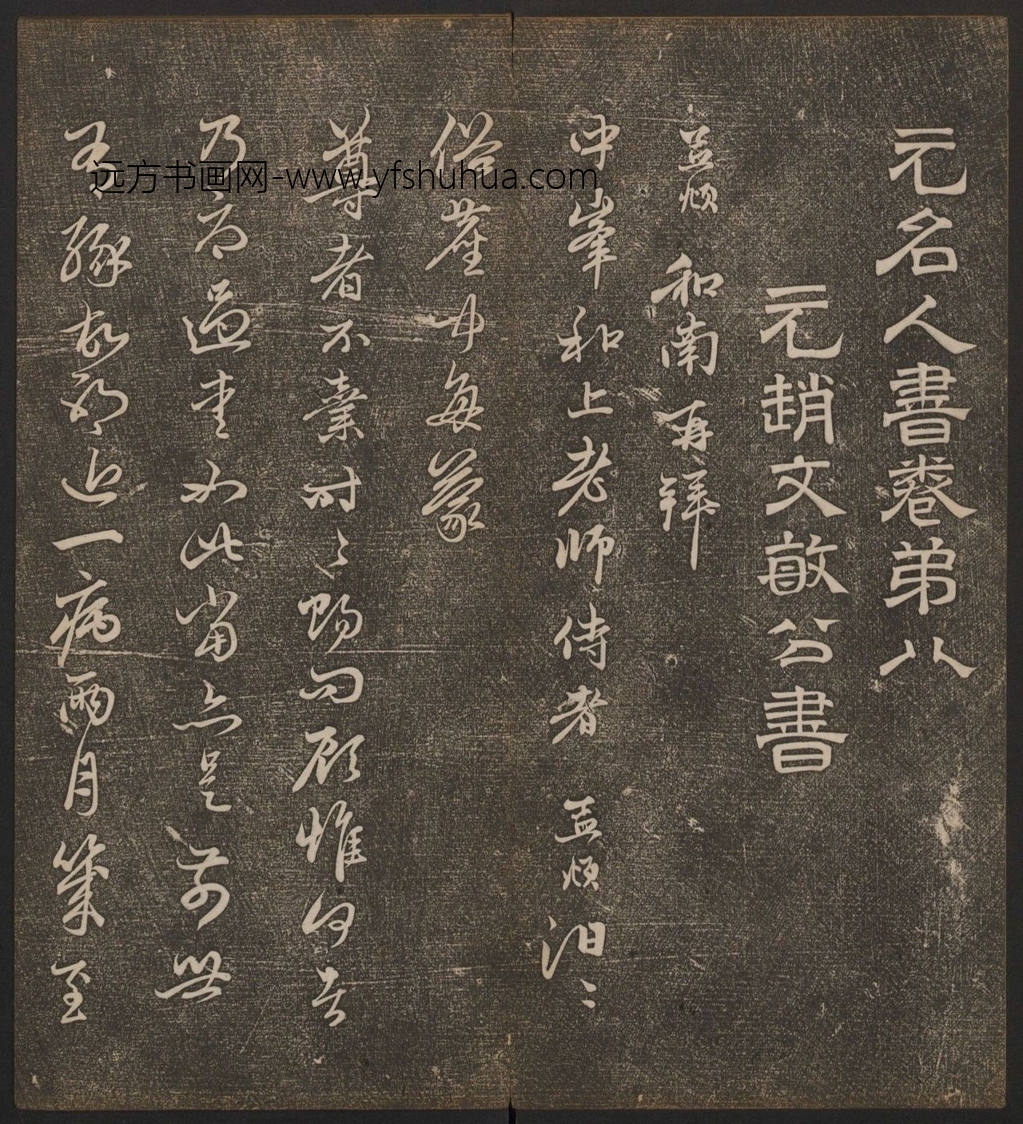 元名人書卷弟八
元趙文敏公書
孟頫和南再拜
中峯和上老師侍者孟頫汩〻
俗塵中每蒙
尊者不棄時〻賜問顧惟何者
乃爾過重如此當亦是前世
有緣故耶近一病兩月幾至
远方书画网-www.yfshuhua.com